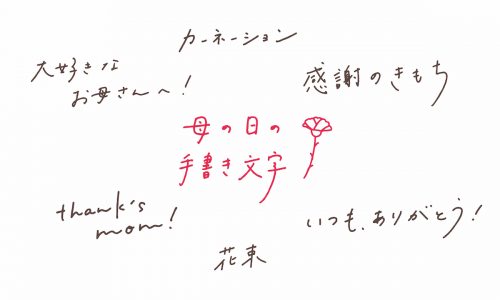 カーネーション
大好きな
お母さんへ!
感謝のきもち
母の日の
手書き文字
thank's
mom!
いつも、ありがとう!
花束